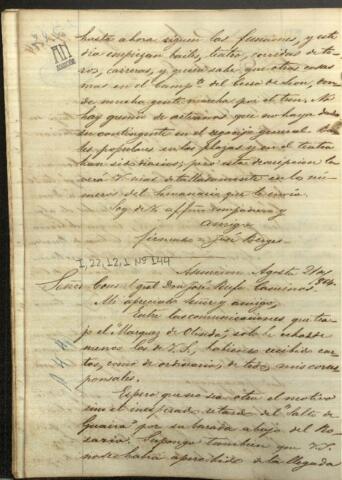 hasta ahora siguen las funciones, y este
dia empiezan bailes, teatro, corridas de to-
ros, carreras, y quien sabe que otras cosas
mas en el Campto. del Cerro de Leon, don-
de mucha gente marcha por el tren. No
hay gremio de artesanos que no haya dado
su contingente en el regocijo general. Bai-
les populares en las plazas y en el teatro
han sido diarios; pero esta descripcion la
verá V. mas detalladamente en los nú-
meros del Semanario que le envio.
Soy de V. affmo compadre y
amigo
firmado = José Berges.
I,22,12,1 Nº 144
Asuncion Agosto 21/864
Señor Consul gral Don José Rufo Caminos.
Mi apreciado Señor y amigo,
Entre las comunicaciones que tra-
jo el "Marques de Olinda", solo he echado
menos las de V.S., habiendo recibido car-
tas, como de ordinario, de todos mis corres-
ponsales.
Espero que no sea otro el motivo
sino el inesperado retardo del "Salto de
Guaira" por su varada abajo del Ro-
sario. Supongo tambien que V.S.
no se habia apercibido de la llegada